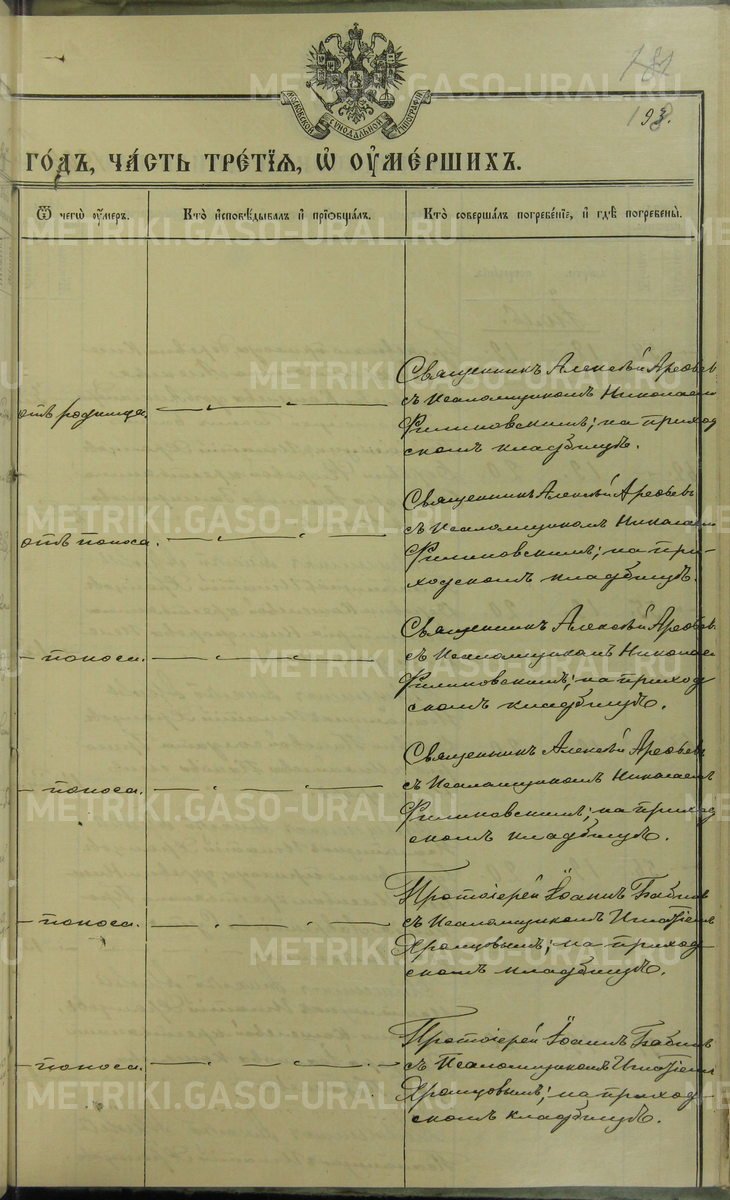 МОСКОВСКОЙ СѴНОДАЛЬНОЙ ТИПОГРАФІИ
193.
ГО́ДЪ, ЧА́СТЬ ТРЕ́ТІЯ, Ѽ ОУМЕ́РШИХЪ.
Ѿ чегѡ̀ оу҆́меръ.
Кто̀ и҆сповѣ́дывалъ и҆ прїѻбща́лъ.
Кто̀ соверша́лъ погребе́нїе, и҆ гдѣ̀ погребены̀.
отъ родимца.
Священникъ Алексѣй Арефьевъ
съ Псаломщикомъ Николаемъ
Филиновскимъ; на приход
скомъ кладбищѣ.
отъ поноса.
Священникъ Алексѣй Арефьевъ
съ Псаломщикомъ Николаемъ
Филиновскимъ; на при-
ходскомъ кладбищѣ.
– поноса.
Священникъ Алексѣй Арефьевъ
съ Псаломщикомъ Николаемъ
Филиновскимъ; на приход
скомъ кладбищѣ.
– поноса.
Священникъ Алексѣй Арефьевъ
съ Псаломщикомъ Николаемъ
Филиновскимъ; на приход
скомъ кладбищѣ.
– поноса.
Протоіерей Іоаннъ Бабинъ
съ Псаломщикомъ Игнатіемъ
Храмцовымъ; на приход-
скомъ кладбищѣ.
– поноса.
Протоіерей Іоаннъ Бабинъ
съ Псаломщикомъ Игнатіемъ
Храмцовымъ; на приход-
скомъ кладбищѣ.
METRIKI.GASO-URAL.RU